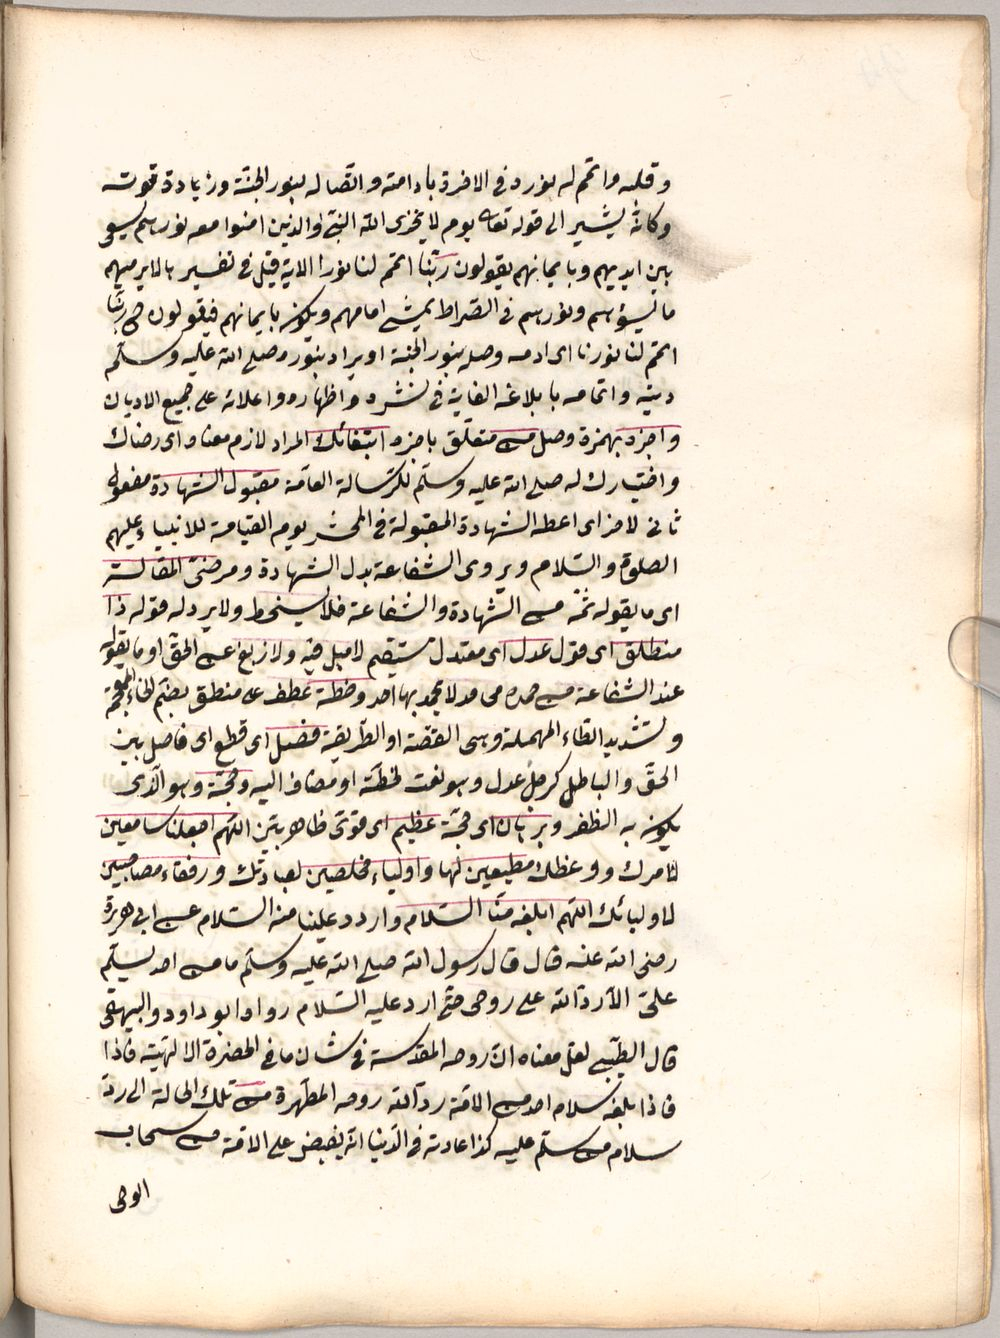 وقلبه واتمم له نوره في الاخرة بادامته واتصاله بنور الجنة وزيادة قوته
وكانه يشير الى قوله تعالى يوم لا يخزى الله النبي والذين امنوا معه نورهم يسعى
بين ايديهم وبايمانهم يقولون ربنا اتمم لنا نورا الاية قيل في تفسير
ونورهم في الصراط يمشى امامهم ويكون بايمانهم فيقولون ربنا
اتمم لنا نورنا اى ادمه وصله بنور الجنة او يراد بنوره صلى الله عليه وسلم
دينه واتمامه بابلاغه الغاية في نشره واظهاره واعلائه على جميع الاديان
واجزه بهمزة وصل من متعلق باجزه ابتغائك المراد لازم معناه اى رضاك
واختيارك له صلى الله عليه وسلم للرسالة العامة مقبول الشهادة مفعول
ثانى لاجز اى اعطه الشهادة المقبولة في المحشر يوم القيامة للانبياء عليهم
الصلوة والسلام ويروى الشفاعة بدل الشهادة ومرضى المقالة
اى ما يقوله ثمه من الشهادة والشفاعة فلا يسخط ولا يرد له قوله ذا
منطلق اى قول عدل اى معتدل مستقيم لا ميل فيه ولا زيغ عن الحق او ما يقوله
عند الشفاعة من حمده محامد لا يحمد بها احد وخطة عطف على منطق بضم الخاء المعجمة
وتشديد الطاء المهملة وهى القصة او الطريقة فصل اى قطع اى فاصل بين
الحق والباطل كرجل عدل وهو نعت لخطة او مضاف اليه وحجة وهو الذى
يكون به الظفر وبرهان اى حجة عظيم اى قوى ظاهر بين اللهم اجعلنا سامعين
لامرك ووعظك مطيعين لها واولياء مخلصين لعبادتك ورفقاء مصاحبين
لاوليائك اللهم ابلغه منا السلام واردد علينا منه السلام عن ابي هريرة
رضى الله عنه قال قال رسول الله صلى الله عليه وسلم ما من احد يسلم
على الا رد الله على روحى حتى ارد عليه السلام رواه ابو داود والبيهقى
قال الطيبى لعل معناه ان روحه المقدسة في شان ما في الحضرة الالهية فاذا
فاذا بلغه سلام احد من الامة رد الله روحه المطهرة من تلك الحالة الى رد
سلام من سلم عليه كذا عادته في الدنيا انه يفيض على الامة من سحاب
الوحى